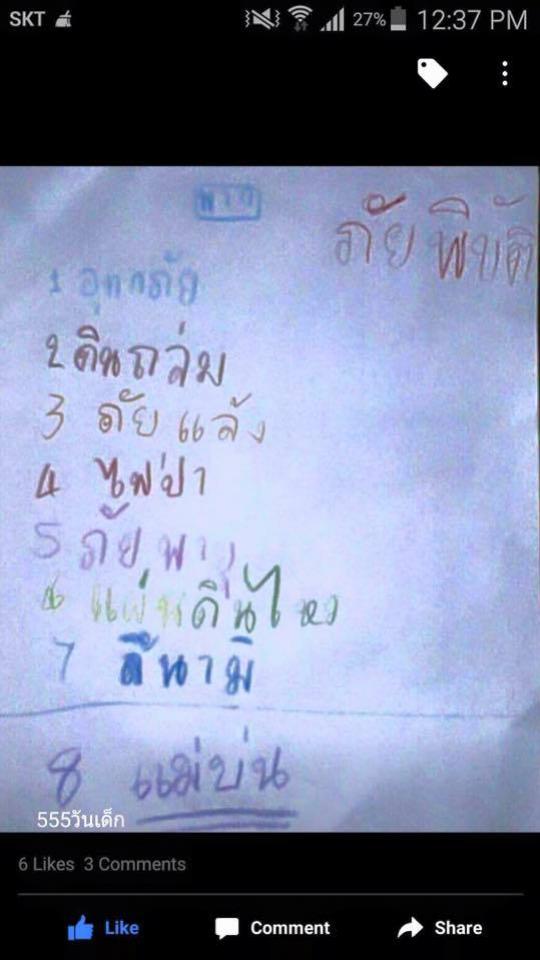 SKT 27% 12:37 PM
ภัยพิบัติ
1 อุทกภัย
2 ดินถล่ม
3 ภัยแล้ง
4 ไฟป่า
5 ภัยพายุ
6 แผ่นดินไหว
7 สึนามิ
8 แม่บ่น
555วันเด็ก
6 Likes 3 Comments
Like Comment Share